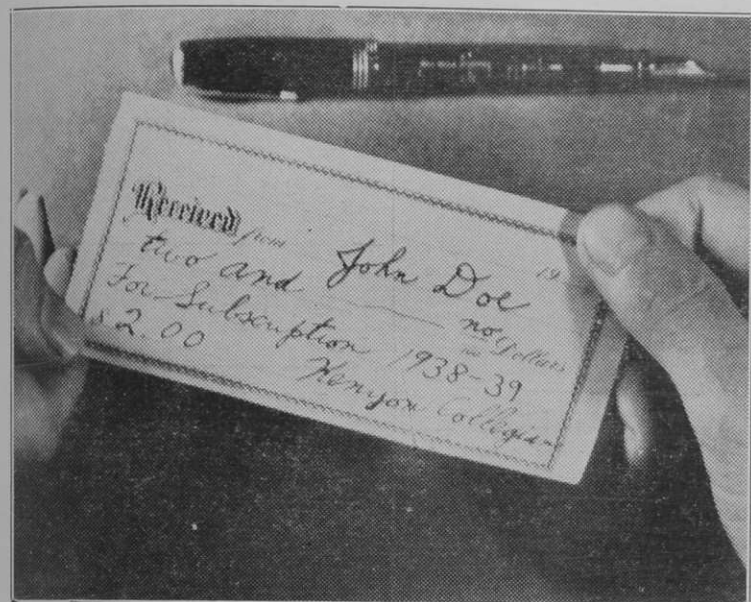 19
Received from John Doe
two and no/100 Dollars
For Subscription 1938-39
$2.00 Kenyon Collegian